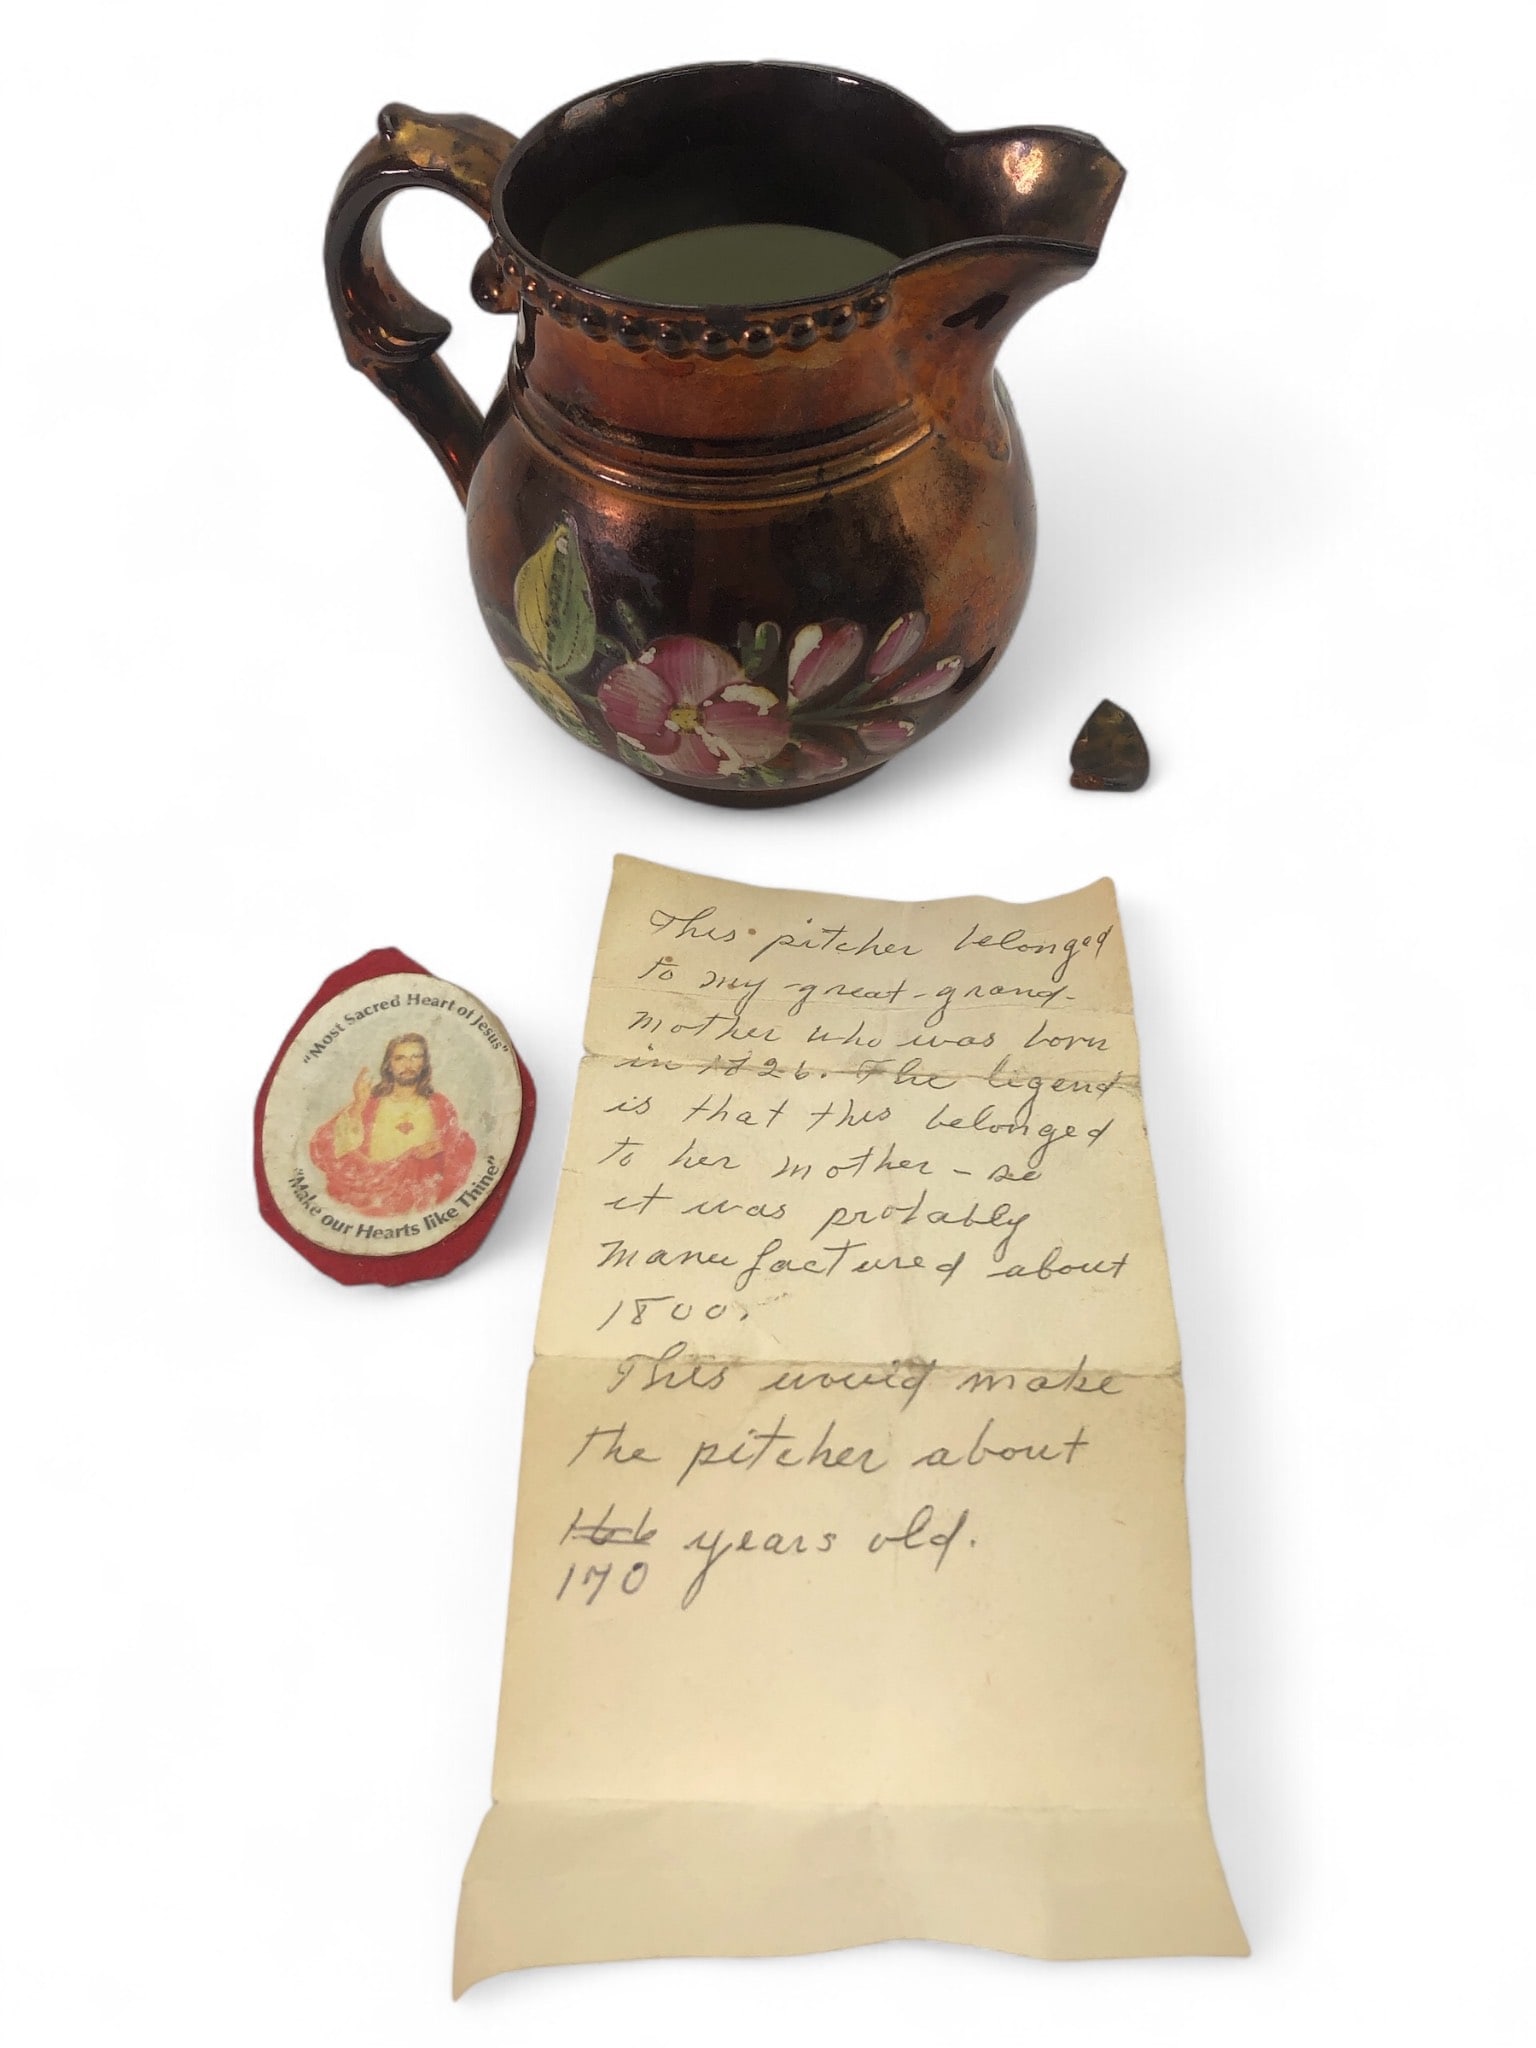 "Most Sacred Heart of Jesus"
"Make our Hearts like Thine"
This pitcher belonged
to my great-grand-
mother who was born
in 1826. The legend
is that this belonged
to her mother - so
it was probably
manufactured about
1800.
This would make
the pitcher about
166 years old.
170